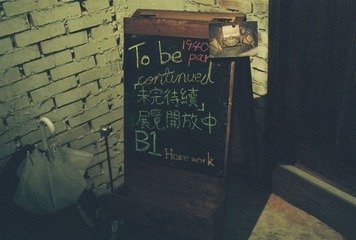 To be 1940
par
continued
未完待續
展覽開放中
B1 Homework